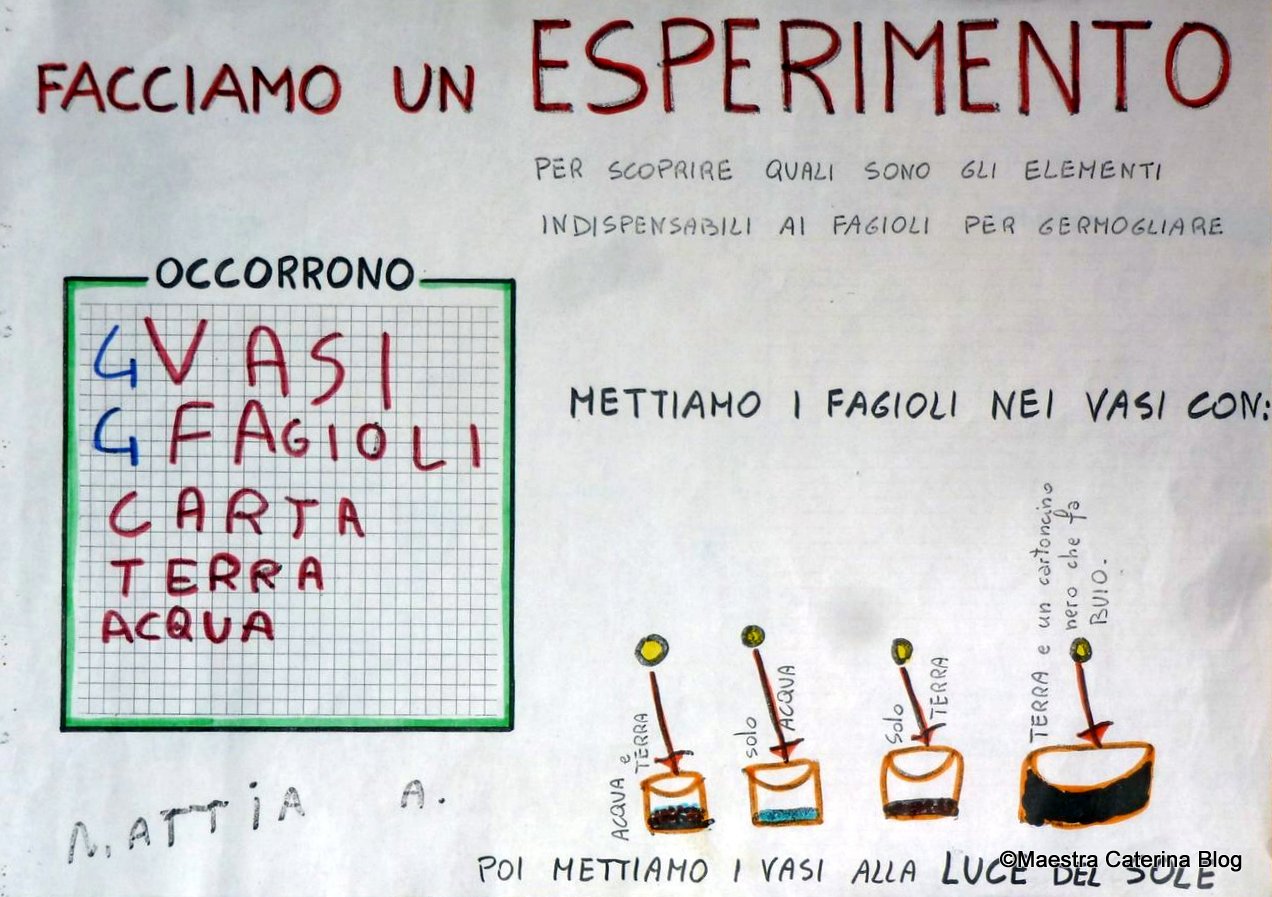 FACCIAMO UN ESPERIMENTO
PER SCOPRIRE QUALI SONO GLI ELEMENTI
INDISPENSABILI AI FAGIOLI PER GERMOGLIARE
OCCORRONO
4 VASI
4 FAGIOLI
CARTA
TERRA
ACQUA
METTIAMO I FAGIOLI NEI VASI CON:
ACQUA e
TERRA
solo
ACQUA
Solo
TERRA
TERRA e un cartoncino
nero che fa
BUIO.
MATTIA A.
POI METTIAMO I VASI ALLA LUCE DEL SOLE
©Maestra Caterina Blog